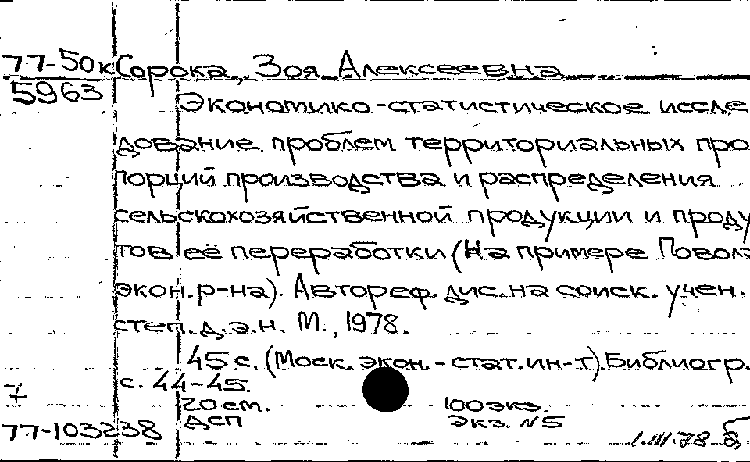 77-50к Сорока, Зоя Алексеевна
5963
Экономико-статистическое иссле
дование проблем территориальных про
порций производства и распределения
сельскохозяйственной продукции и проду
тов её переработки (На примере Повол
экон. р-на). Автореф. дис. на соиск. учен.
степ. д.э.н. М., 1978.
45 с. (Моск. экон.-стат. ин-т). Библиогр.
с. 44-45.
20 см. 100 экз.
77-103238 ДСП Экз. №5
1.III.78